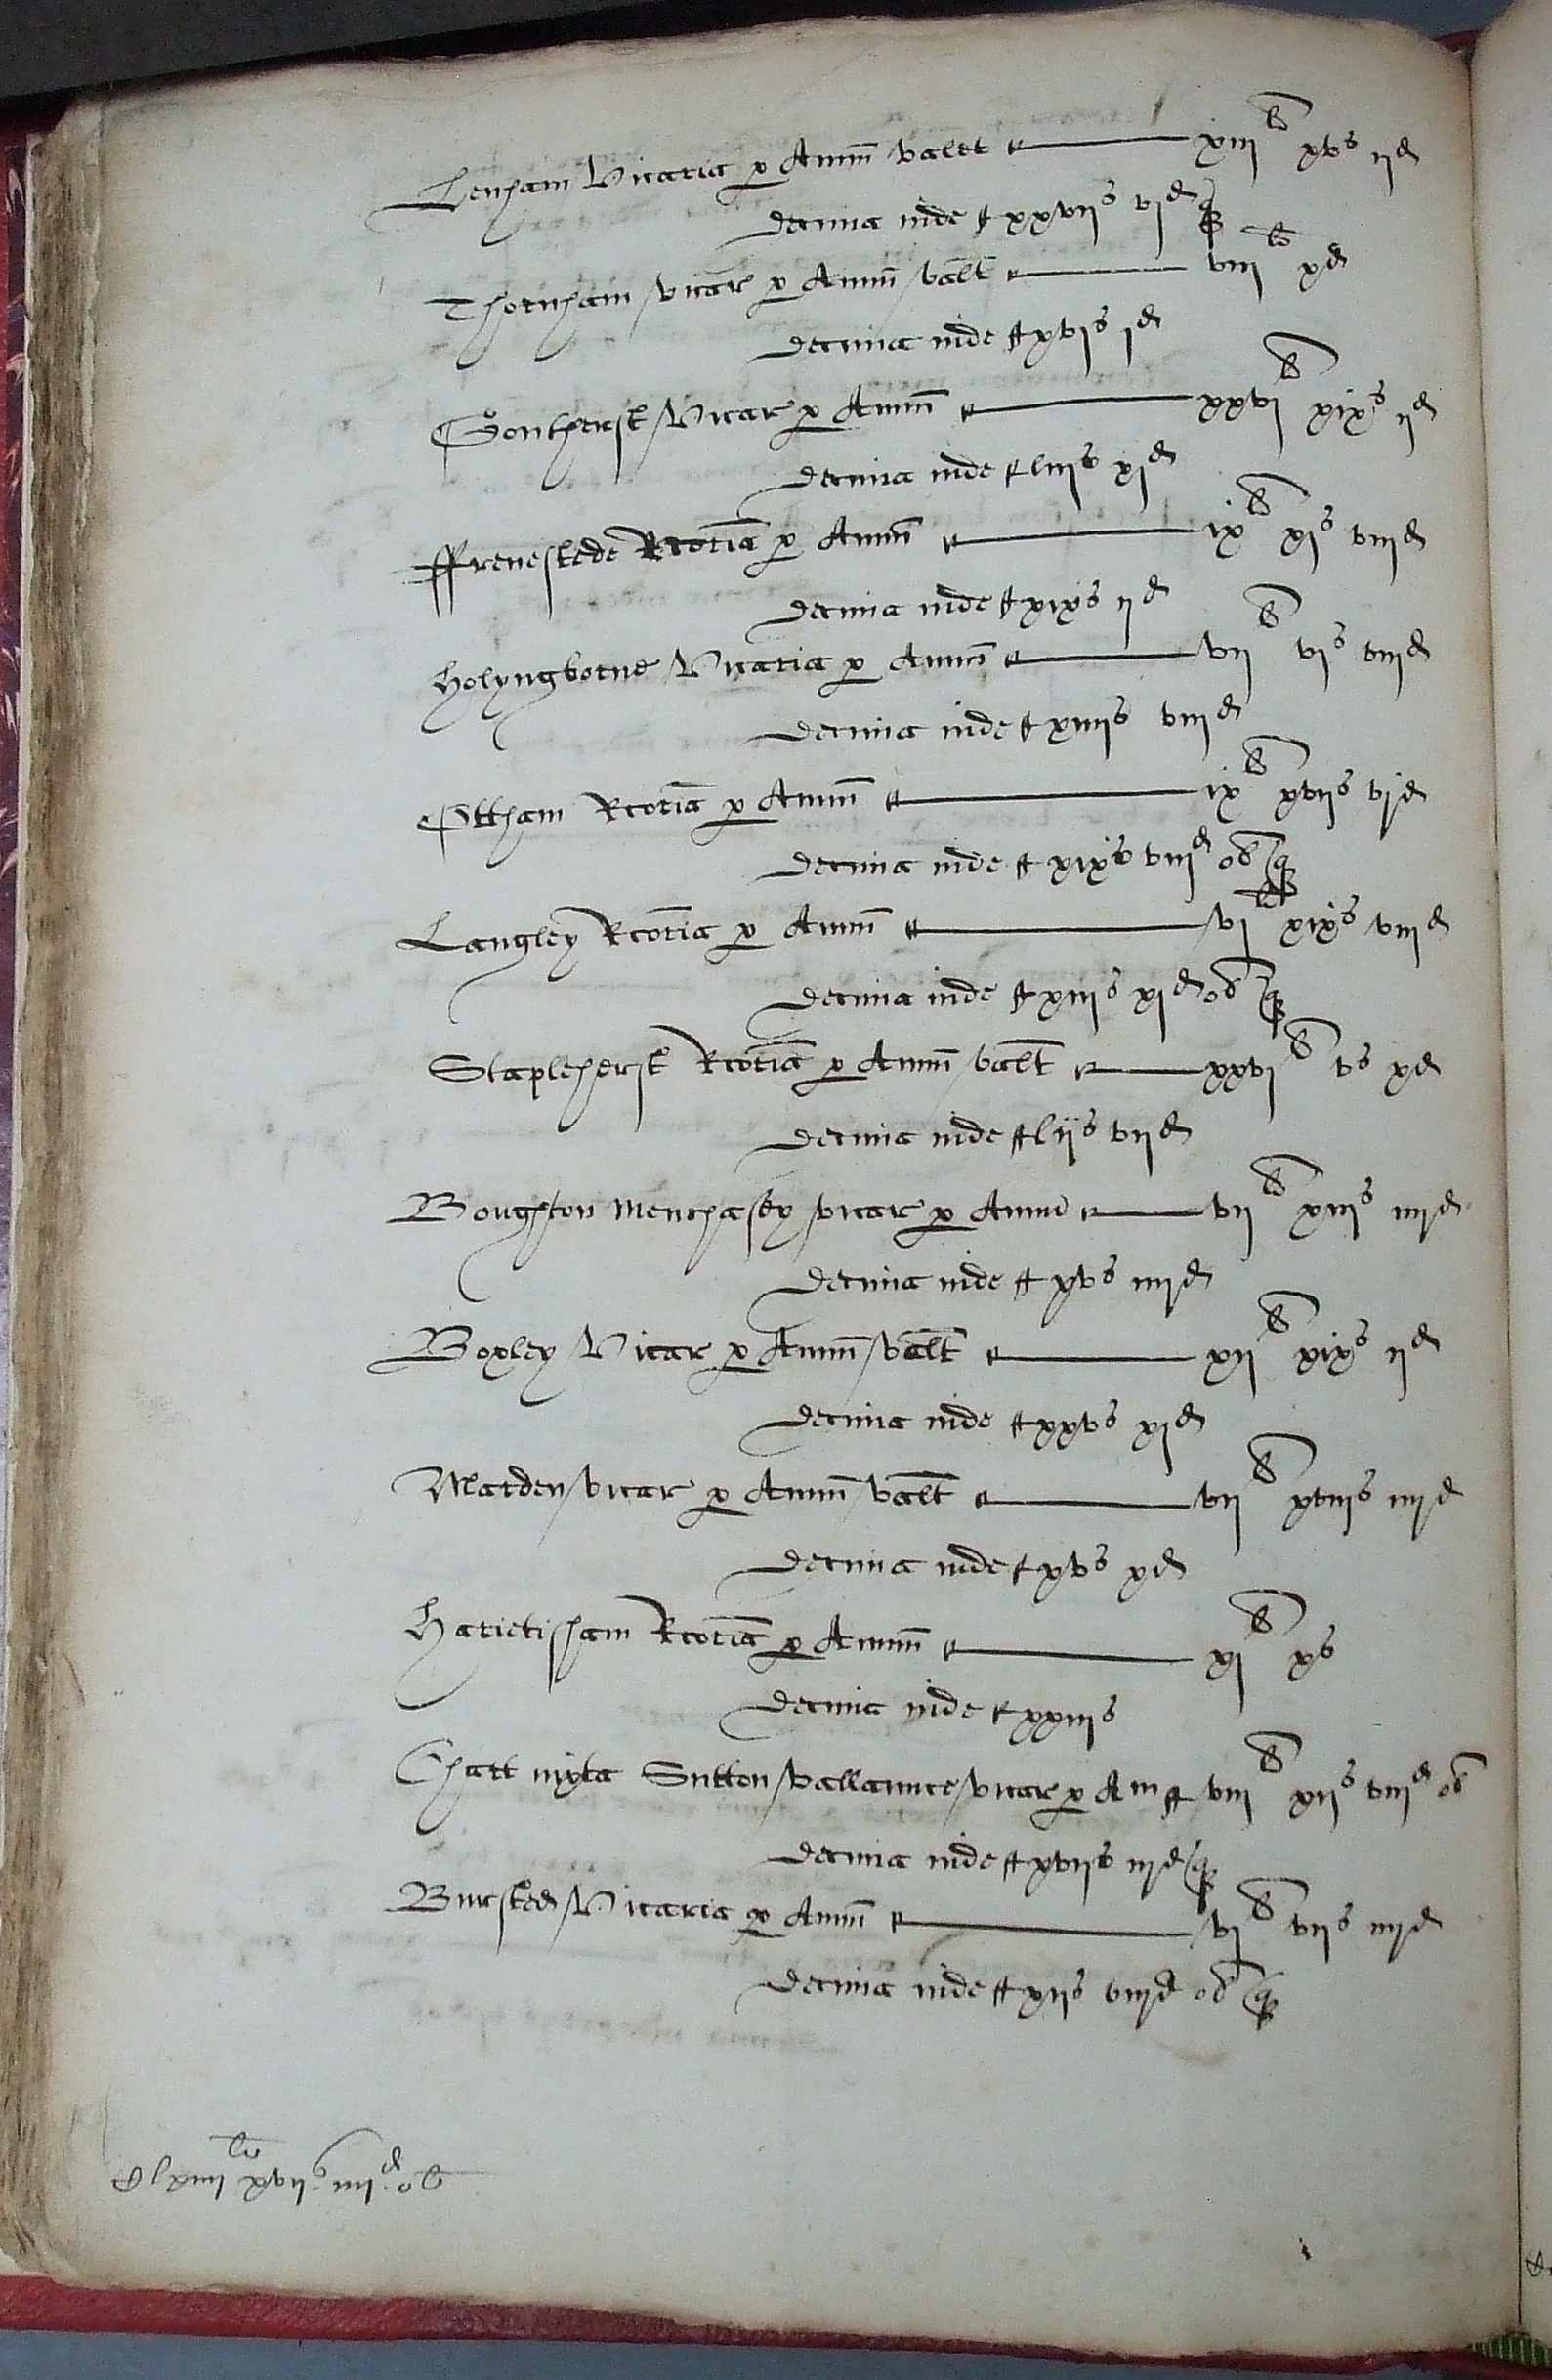 Lenham Vicaria p Annu valet — xiii li xvs iid
Decima inde xxviis vid q
Thornham vicar p Annu valt — viii li xd
Decima inde xvis id
Goutherst Vicar p Annu — xxvi li xixs iid
Decima inde liiis xid
ffrenestede Rcoria p Annu — ix li xis viiid
Decima inde xixs iid
Holyngborne Vicaria p Annu — vii li vis viiid
Decima inde xiiiis viiid
Ottham Rcoria p Annu — ix li xviis vid
Decima inde xixs viiid ob q
Langley Rcoria p Annu — vi li xixs viiid
Decima inde xiiis xid ob q
Stapleherst Rcoria p Annu valt — xxvi li vs xd
Decima inde liis viid
Boughton Menchasey vicar p Annu — vii li xiiis iiiid
Decima inde xvs iiiid
Boxley Vicar p Annu valt — xii li xixs iid
Decima inde xxvs xid
Marden vicar p Annu valt — vii li xviiis iiiid
Decima inde xvs xd
Harietisham Rcoria p Annu — xi li xs
Decima inde xxiiis
Chart iuxta Sutton vallance vicar p Am viii li xiis viiid ob
Decima inde xviis iiid q
Bersted Vicaria p Annu — vi li viis iiiid
Decima inde xiis viiid ob q
clxiiii li xviis. iiiid. ob